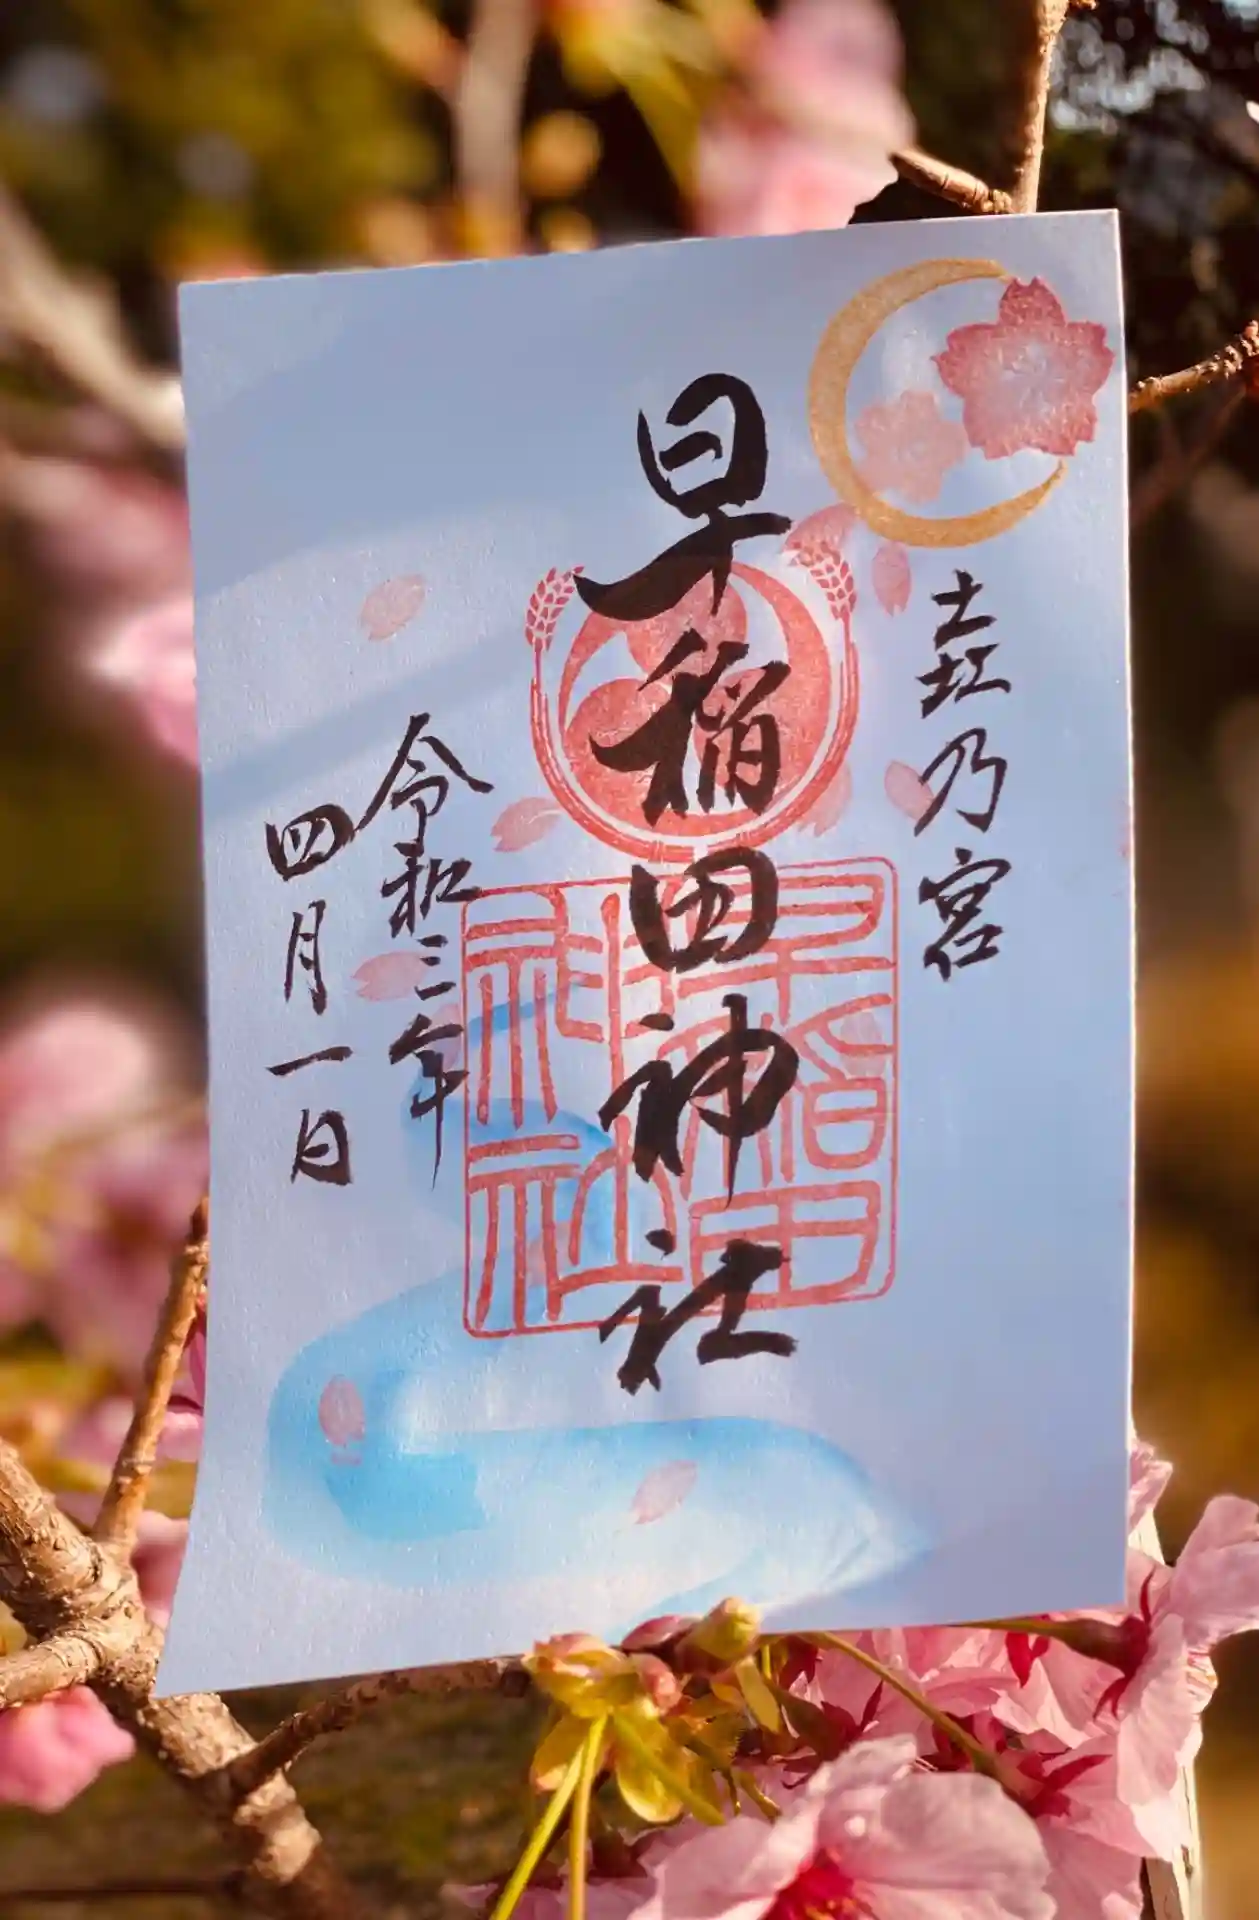 乃宮
早稲田神社
令和三年
四月一日
早稲田
神社